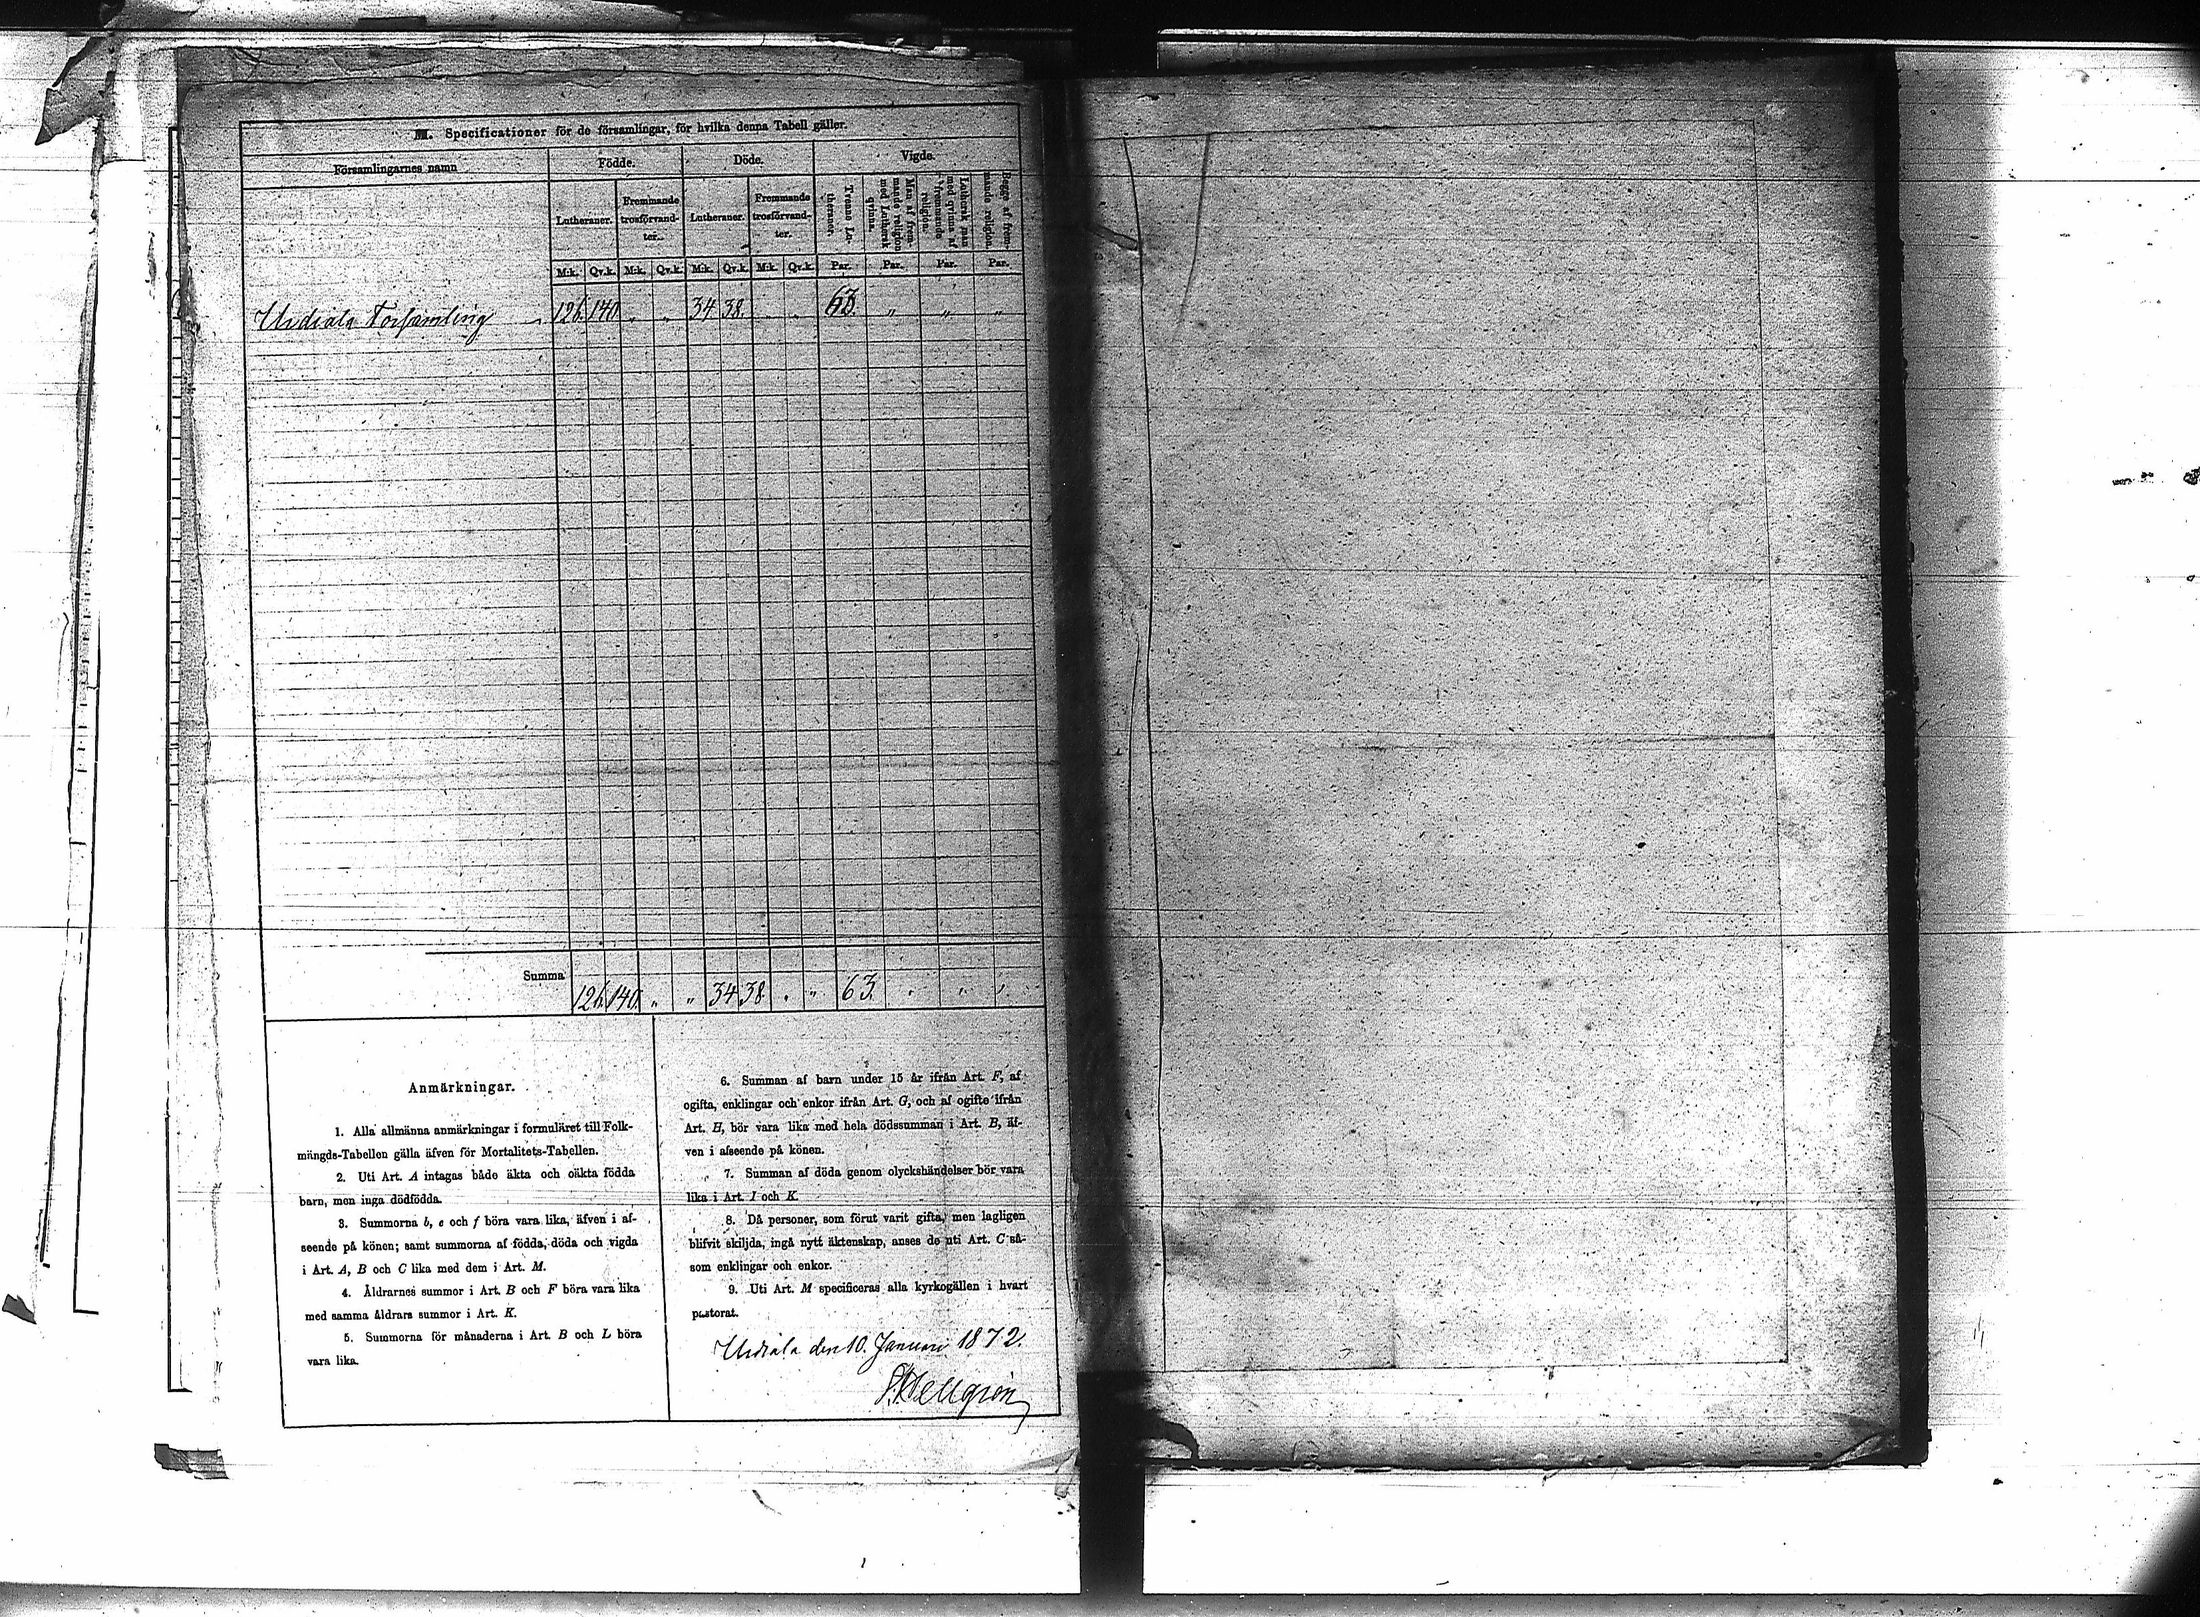 M. Specificationer för de församlingar, för hvilka denna Tabell gäller.
Församlingarnes namn
Födde.
Döde.
Vigde.
Lutheraner.
Fremmande trosförvand-
ter.
Lutheraner.
Fremmande
trosförvand-
ter.
Trenne Lu-
theraner.
Man af frem-
mande religion
med Luthersk
qvinna.
Luthersk man
med qvinna af
fremmande
religion.
Begge af frem-
mande religion.
M:k. Qv.k. M:k. Qv.k. M:k. Qv.k. M:k. Qv.k. Par. Par. Par. Par.
Urdiala Församling 126. 140. „ „ 34 38. „ „ 63. „ „ „
Summa
126. 140. „ „ 34 38. „ „ 63. „ „ „
Anmärkningar.
1. Alla allmänna anmärkningar i formuläret till Folk-
mängds-Tabellen gälla äfven för Mortalitets-Tabellen.
2. Uti Art. A intagas både äkta och oäkta födda
barn, men inga dödfödda.
3. Summorna b, e och f böra vara lika, äfven i af-
seende på könen; samt summorna af födda, döda och vigda
i Art. A, B och C lika med dem i Art. M.
4. Åldrarnes summor i Art. B och F böra vara lika
med samma åldrars summor i Art. K.
5. Summorna för månaderna i Art. B och L böra
vara lika.
6. Summan af barn under 15 år ifrån Art. F, af
ogifta, enklingar och enkor ifrån Art. G, och af ogifte ifrån
Art. H, bör vara lika med hela dödssumman i Art. B, äf-
ven i afseende på könen.
7. Summan af döda genom olyckshändelser bör vara
lika i Art. I och K.
8. Då personer, som förut varit gifta, men lagligen
blifvit skiljda, ingå nytt äktenskap, anses de uti Art. C så-
som enklingar och enkor.
9. Uti Art. M specificeras alla kyrkogällen i hvart
pastorat.
Urdiala den 10. Januari 1872.